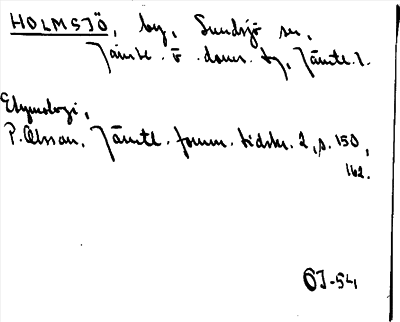 HOLMSJÖ, by, Sundsjö sn,
Jämtl. ö. doms. tg, Jämtl. l.
Etymologi,
P. Olsson, Jämtl. fornm. tidskr. 2, s. 150,
162.
OJ-54